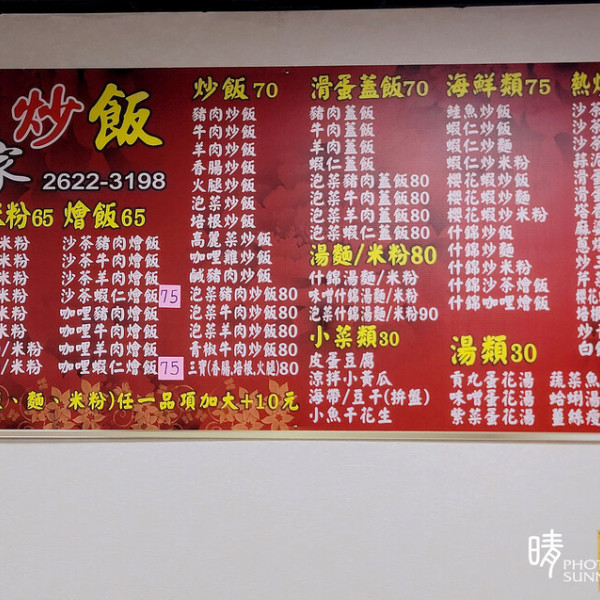 炒飯
家 2622-3198
米粉65 燴飯65
米粉 沙茶豬肉燴飯
米粉 沙茶牛肉燴飯
米粉 沙茶羊肉燴飯
米粉 沙茶蝦仁燴飯75
米粉 咖哩豬肉燴飯
米粉 咖哩牛肉燴飯
/米粉 咖哩羊肉燴飯
/米粉 咖哩蝦仁燴飯75
、麵、米粉)任一品項加大+10元
炒飯70
豬肉炒飯
牛肉炒飯
羊肉炒飯
香腸炒飯
火腿炒飯
泡菜炒飯
培根炒飯
高麗菜炒飯
咖哩雞炒飯
鹹豬肉炒飯
泡菜豬肉炒飯80
泡菜牛肉炒飯80
泡菜羊肉炒飯80
青椒牛肉炒飯80
三寶(香腸,培根,火腿)80
滑蛋蓋飯70
豬肉蓋飯
牛肉蓋飯
羊肉蓋飯
蝦仁蓋飯
泡菜豬肉蓋飯80
泡菜牛肉蓋飯80
泡菜羊肉蓋飯80
泡菜蝦仁蓋飯80
湯麵/米粉80
什錦湯麵/米粉
味噌什錦湯麵/米粉
泡菜什錦湯麵/米粉90
小菜類30
皮蛋豆腐
涼拌小黃瓜
海帶/豆干(拼盤)
小魚干花生
海鮮類75
鮭魚炒飯
蝦仁炒飯
蝦仁炒麵
蝦仁炒米粉
櫻花蝦炒飯
櫻花蝦炒麵
櫻花蝦炒米粉
什錦炒飯
什錦炒麵
什錦炒米粉
什錦沙茶燴飯
什錦咖哩燴飯
湯類30
貢丸蛋花湯 蔬菜
味噌蛋花湯 蛤蜊湯
紫菜蛋花湯 薑絲
沙茶
沙茶
沙茶
晴 PHOTO
SUNN